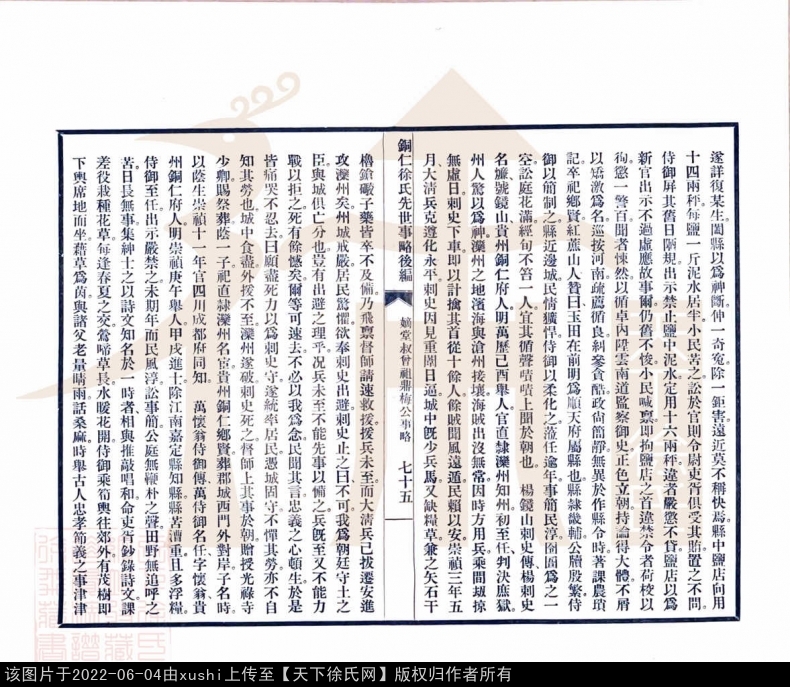 遂詳復某生闔縣以爲神斷伸一奇冤除一鉅害遠近莫不稱快焉縣中鹽店向用
十四兩秤每鹽一斤泥水居半小民苦之訟於官則令尉吏胥俱受其賄置之不問
侍御屏其舊日陋規出示禁止鹽中泥水定用十六兩秤違者嚴懲不貸鹽店以爲
新官出示不過虛應故事爾仍舊不悛小民喊禀即拘鹽店之首違禁令者荷校以
徇懲一警百聞者悚然以循卓內陞雲南道監察御史正色立朝持論得大體不屑
以矯激爲名巡按河南疏薦循良糾參貪酷政尚簡靜無異於作縣令時著課農瑣
記卒祀鄉賢紅蕉山人贊曰玉田在前明爲順天府屬縣也縣隸畿輔公牘殷繁侍
御以簡制之縣近邊城民情獷悍侍御以柔化之蒞任逾年事簡民淳囹圄爲之一
空訟庭花滿經旬不笞一人宜其循聲嘖嘖上聞於朝也　楊鏡山刺史傳楊刺史
名㠉號鏡山貴州銅仁府人明萬歷己酉舉人官直隸灤州知州初至任判決庶獄
州人驚以爲神灤州之地濱海與滄州接壤海賊出沒無常因時方用兵乘間刼掠
無虛日刺史下車即以計擒其首從十餘人餘賊聞風遠遁民賴以安崇禎三年五
月大淸兵克遵化永平刺史因見重闉日逼城中旣少兵馬又缺糧草兼之矢石干
銅仁徐氏先世事略後編　嫡堂叔曾祖鼎梅公事略　七十五
櫓鎗礮子藥皆卒不及備乃飛禀督師請速救援援兵未至而大淸兵已拔遷安進
攻灤州矣州城戒嚴居民驚懼欲奉刺史出避刺史止之曰不可我爲朝廷守土之
臣與城俱亡分也豈有出避之理乎况兵未至不能先事以備之兵旣至又不能力
戰以拒之死有餘憾矣爾等可速去不必以我爲念民聞其言忠義之心頓生於是
皆痛哭不忍去曰願盡死力以爲刺史守遂統率居民憑城固守不憚其勞亦不自
知其勞也城中食盡外援不至灤州遂破刺史死之督師上其事於朝贈授光祿寺
少卿賜祭葬蔭一子祀直隸灤州名宦貴州銅仁鄉賢葬郡城西門外對岸子名時
以蔭生崇禎十一年官四川成都府同知　萬懷翁侍御傳萬侍御名任字懷翁貴
州銅仁府人明崇禎庚午舉人甲戌進士除江南嘉定縣知縣縣苦漕重且多浮糧
侍御至任出示嚴禁之未期年而民風淳訟事簡公庭無鞭朴之聲田野無追呼之
苦日長無事集紳士之以詩文知名於一時者相與推敲唱和命吏胥鈔錄詩文課
差役栽種花草每逢春夏之交鶯啼草長水暖花開侍御乘筍輿往郊外有茂樹即
下輿席地而坐藉草爲茵與諸父老量晴雨話桑麻時舉古人忠孝節義之事津津
该图片于2022-06-04由xushi上传至【天下徐氏网】版权归作者所有